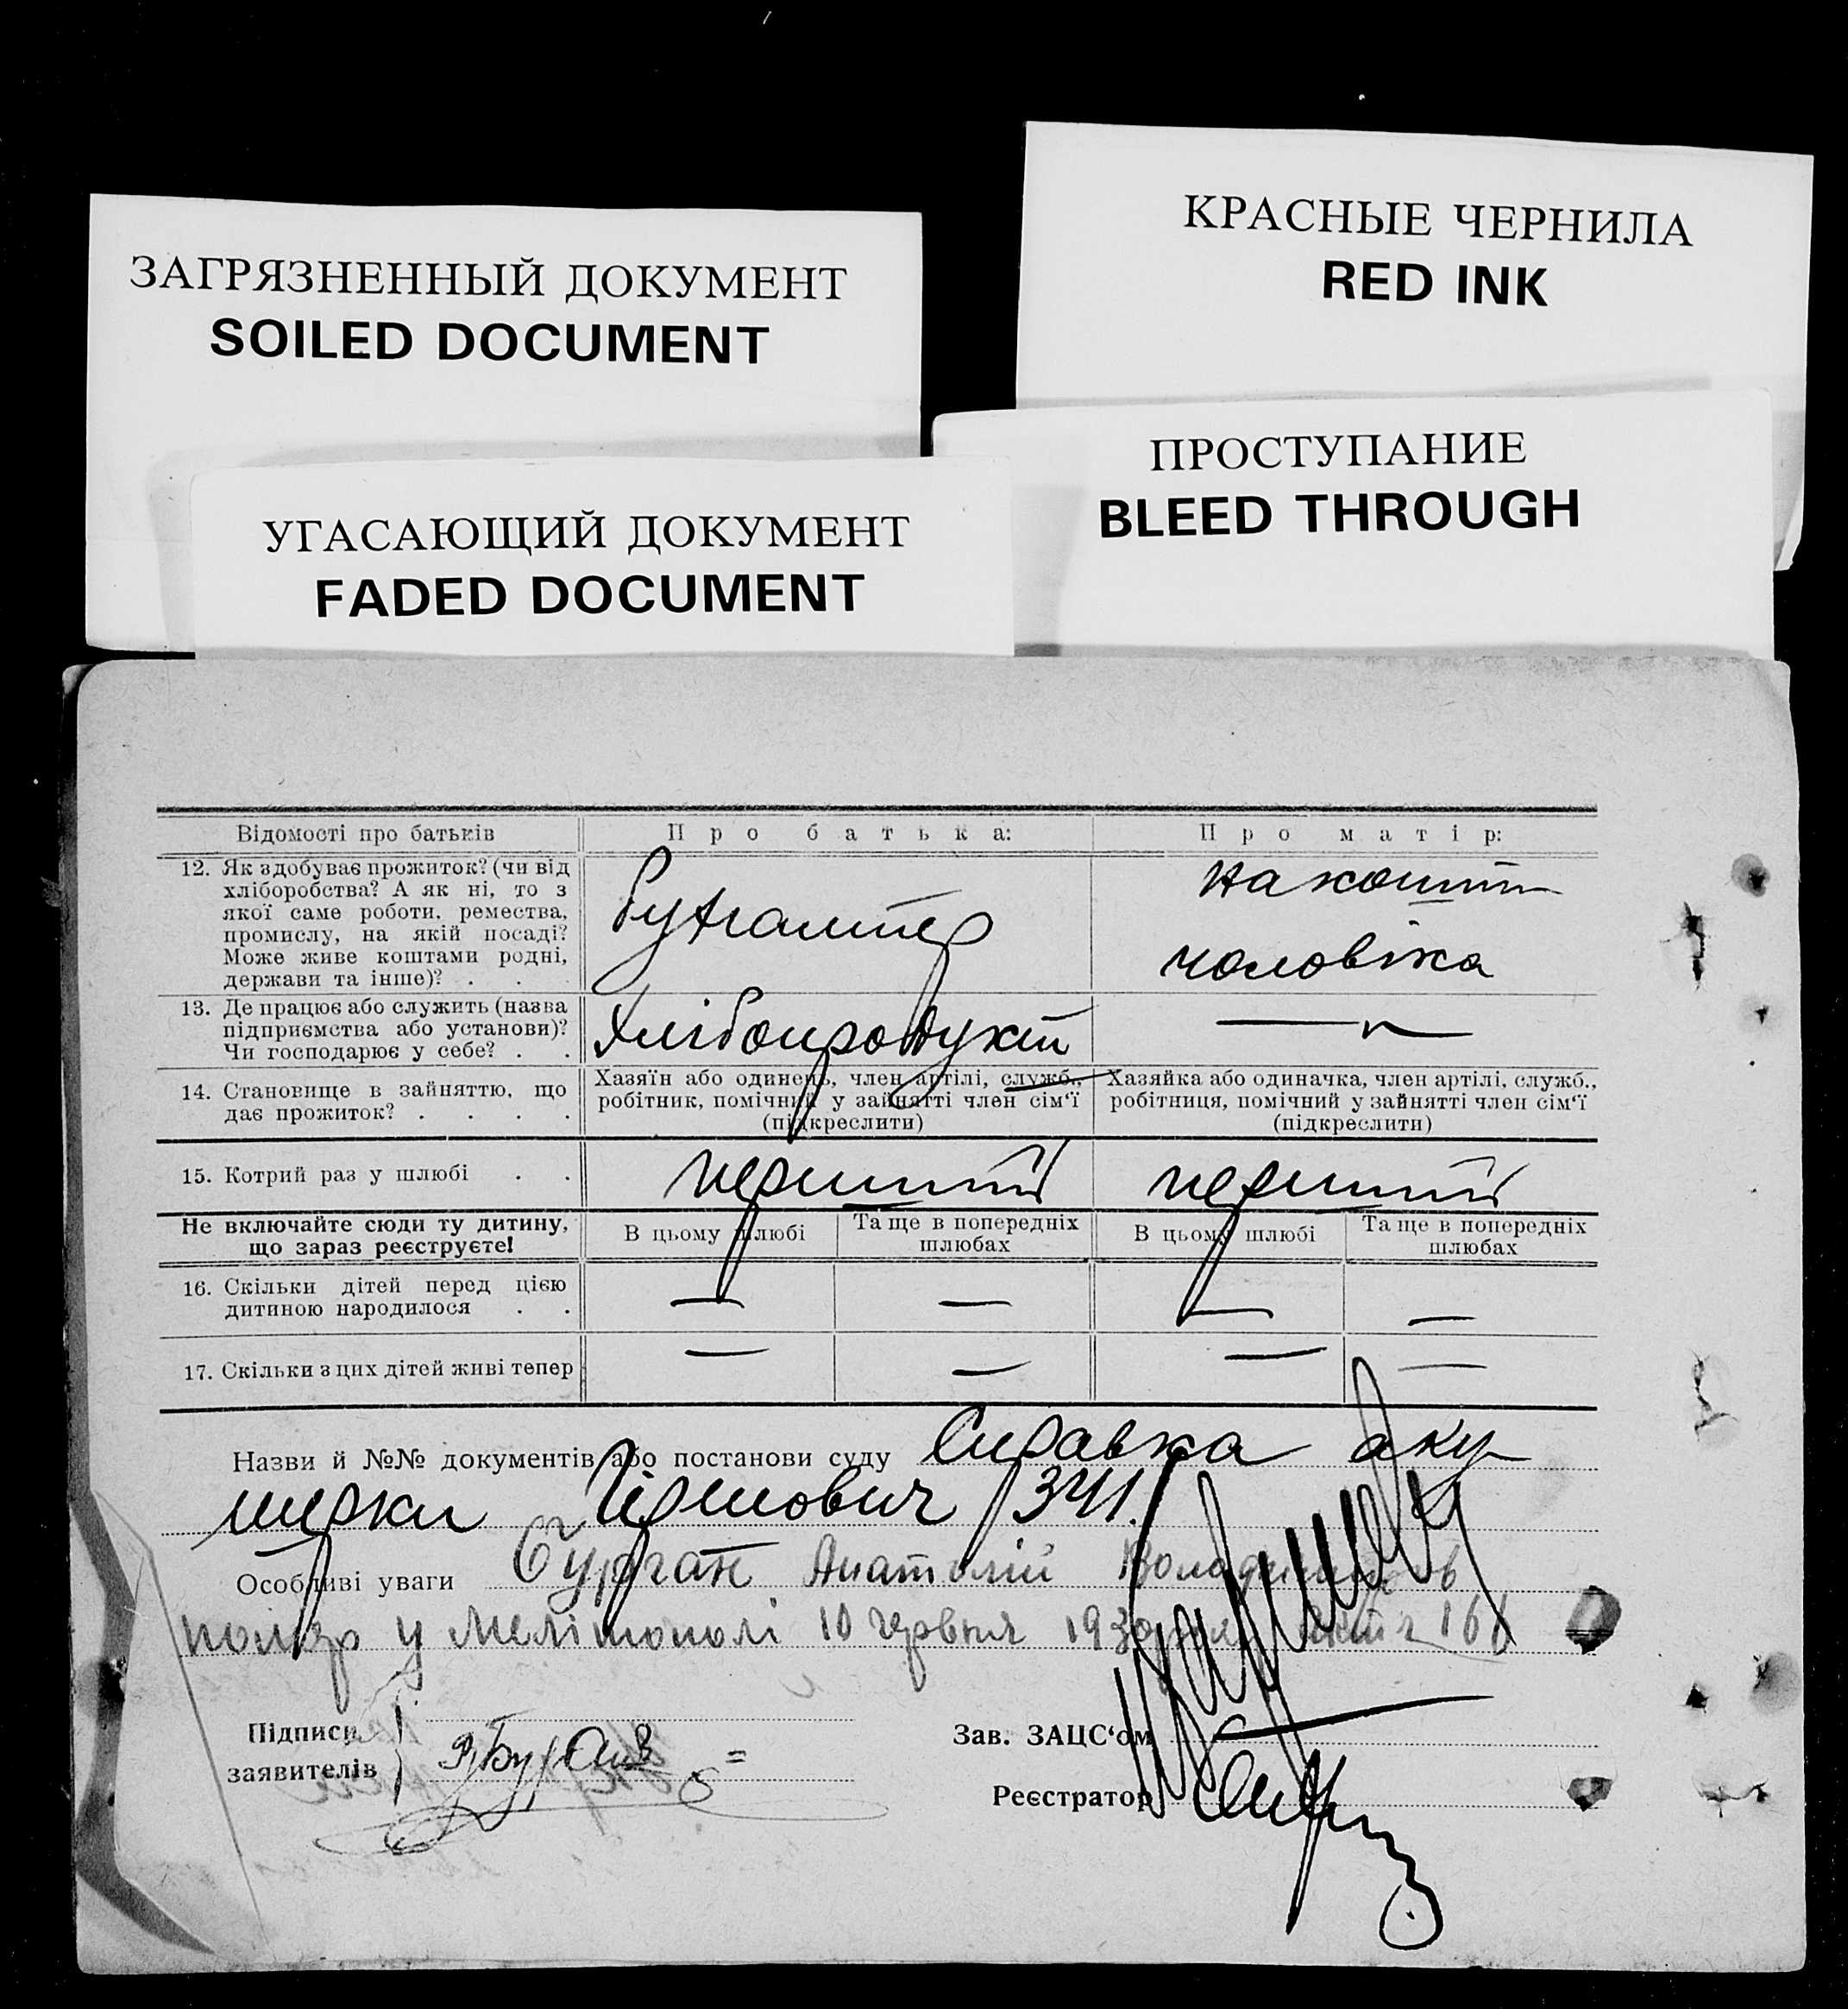 КРАСНЫЕ ЧЕРНИЛА
RED INK
ЗАГРЯЗНЕННЫЙ ДОКУМЕНТ
SOILED DOCUMENT
ПРОСТУПАНИЕ
BLEED THROUGH
УГАСАЮЩИЙ ДОКУМЕНТ
FADED DOCUMENT
Відомості про батьків
Про батька:
Про матір:
12. Як здобуває прожиток? (чи від
хліборобства? А як ні, то з
якої саме роботи, ремества,
промислу, на якій посаді?
Може живе коштами родні,
держави та інше)? . . .
Бухгалтер
На кошти
чоловіка
13. Де працює або служить (назва
підприємства або установи)?
Чи господарює у себе? . .
Хлібопродукт
—
14. Становище в зайняттю, що
дає прожиток? . . . .
Хазяїн або одинець, член артілі, служб.,
робітник, помічний у зайнятті член сім‘ї
(підкреслити)
Хазяйка або одиначка, член артілі, служб.,
робітниця, помічний у зайнятті член сім‘ї
(підкреслити)
15. Котрий раз у шлюбі . .
перший
перший
Не включайте сюди ту дитину,
що зараз реєструєте!
В цьому шлюбі
Та ще в попередніх
шлюбах
В цьому шлюбі
Та ще в попередніх
шлюбах
16. Скільки дітей перед цією
дитиною народилося . .
— — — —
17. Скільки з цих дітей живі тепер
— — — —
Назви й №№ документів або постанови суду Справка аку
шерки 341.
Особливі уваги Бурган Анатолій
помер у Мелітополі 10 червня 1930 166
Підписи
заявителів
Зав. ЗАЦС‘ом
Реєстратор